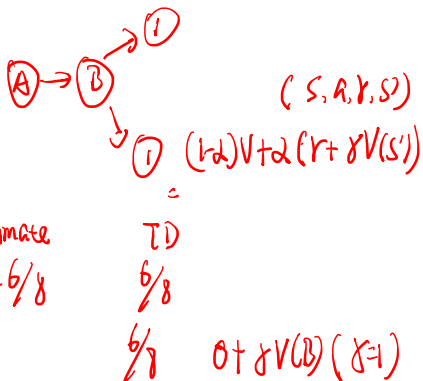 1
A → B
1
(s, a, r, s')
(1-α)V+α(r+γV(s'))
=
mate TD
6/8 6/8
6/8 0+γV(B) (γ=1)